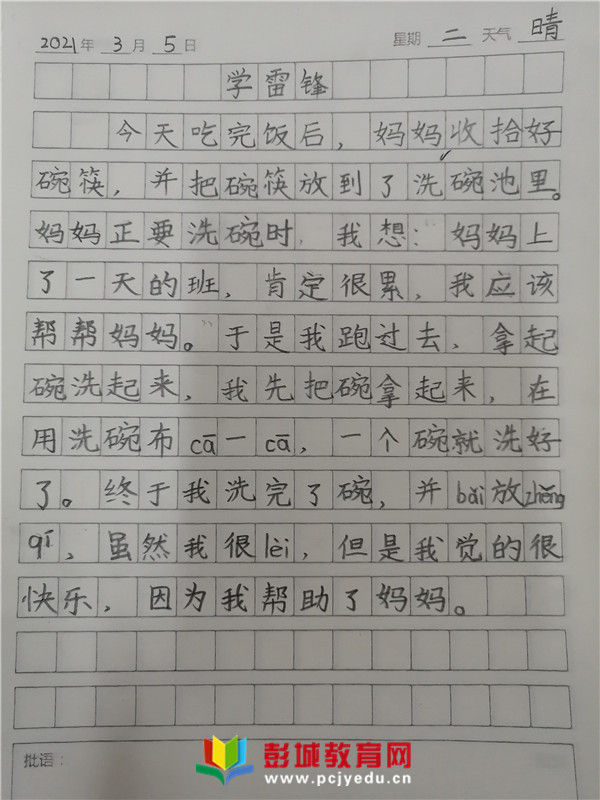 2021年 3月 5日 星期 二 天气 晴
学雷锋
今天吃完饭后，妈妈收拾好
碗筷，并把碗筷放到了洗碗池里。
妈妈正要洗碗时，我想：妈妈上
了一天的班，肯定很累，我应该
帮帮妈妈。于是我跑过去，拿起
碗洗起来，我先把碗拿起来，在
用洗碗布cā一cā，一个碗就洗好
了。终于我洗完了碗，并bǎi放zhěng
qí，虽然我很lèi，但是我觉的很
快乐，因为我帮助了妈妈。
批语：
彭城教育网
www.pcjyedu.cn